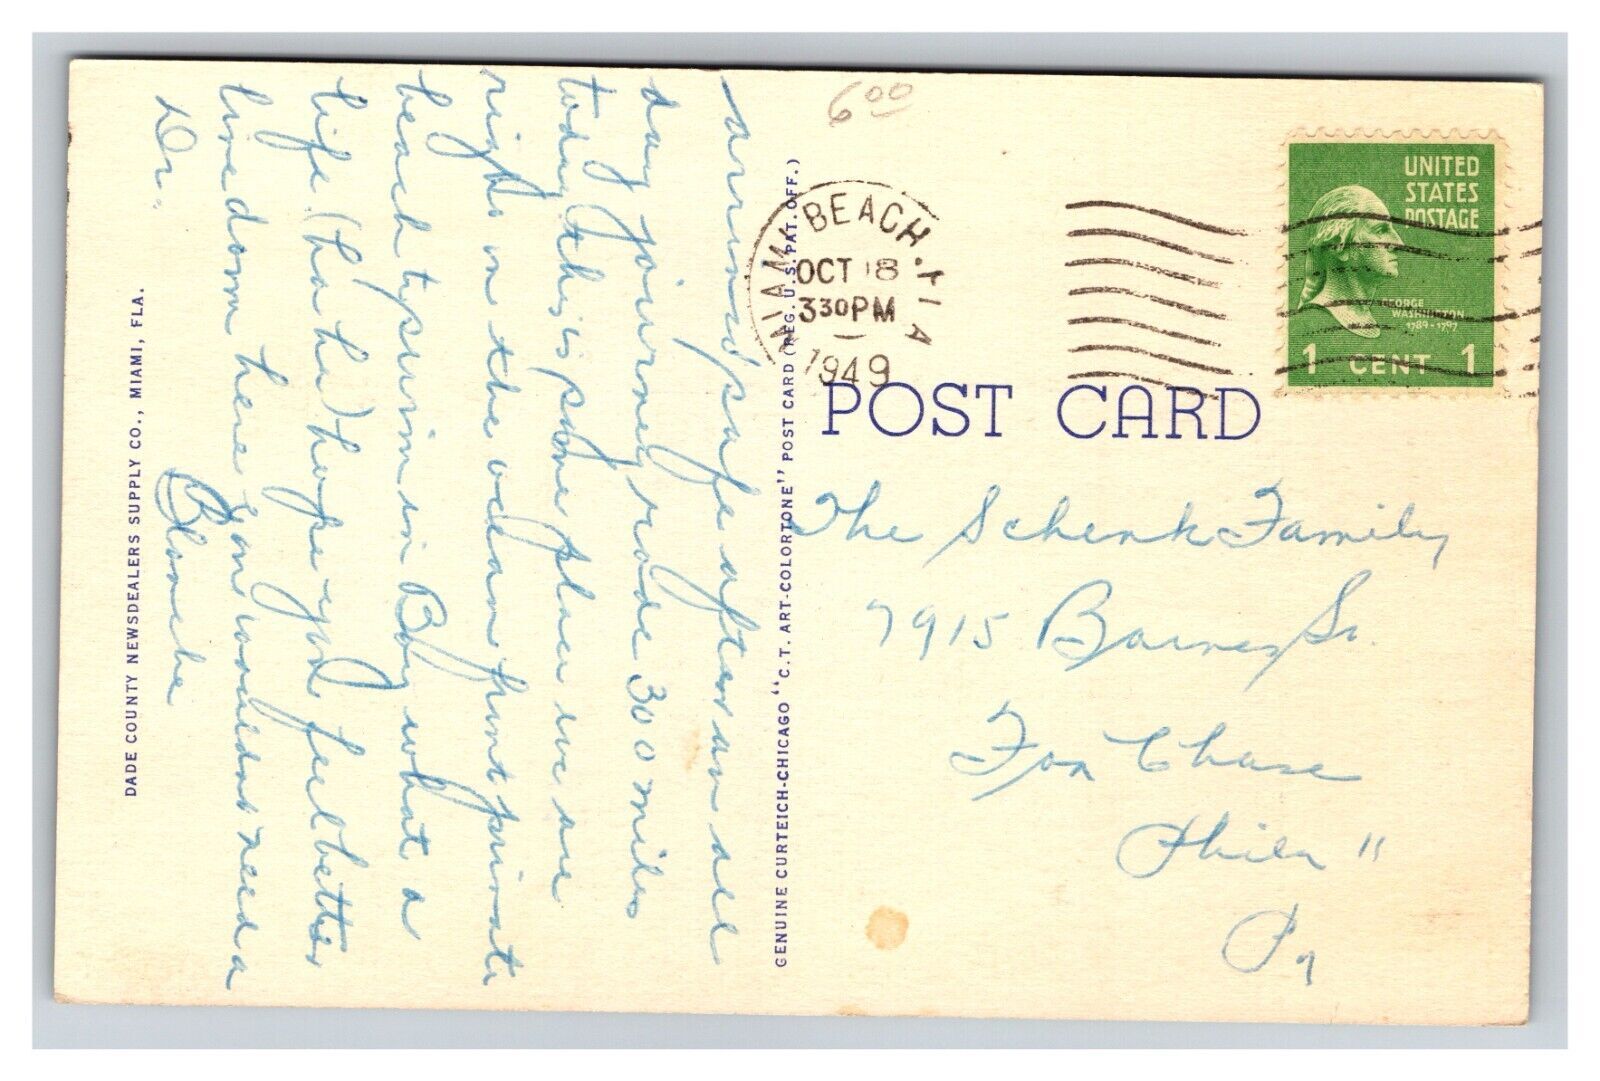 6 00
Arrived safe after an all
day journey rode 300 miles
today this is some place we are
right on the ocean front private
beach typewin in Boy what a
life (ha ha) hope you feel better
live down here you wouldnt need a
Dr. Blanche
DADE COUNTY NEWSDEALERS SUPPLY CO., MIAMI, FLA.
GENUINE CURTEICH-CHICAGO "C.T. ART-COLORTONE" POST CARD (REG. U.S. PAT. OFF.)
MIAMI BEACH, FLA
OCT 18
330PM
1949
UNITED
STATES
POSTAGE
GEORGE
WASHINGTON
1789-1797
1 CENT 1
POST CARD
The Schenk Family
7915 Barnes St.
Fox Chase
Phila "
Pa